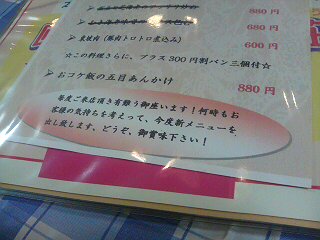 880円
680円
東坡肉(豚肉トロトロ煮込み) 600円
☆この料理さらに、プラス300円割パン三個付☆
おコゲ飯の五目あんかけ 880円
毎度ご来店頂き有難う御座います！何時もお
客様の気持ちを考えって、今度新メニューを
出し致します、どうぞ、御賞味下さい！